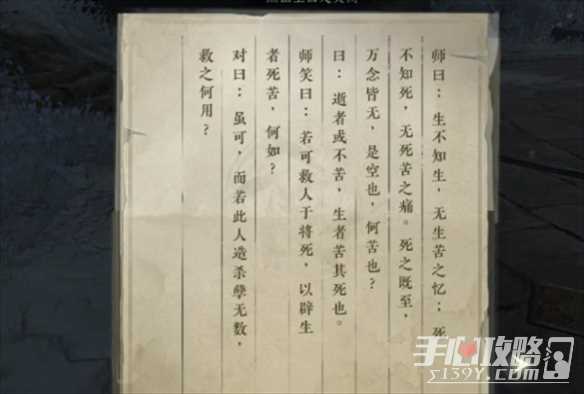 师曰：生不知生，无生苦之忆；死
不知死，无死苦之痛。死之既至，
万念皆无，是空也，何苦也？
曰：逝者或不苦，生者苦其死也。
师笑曰：若可救人于将死，以辟生
者死苦，何如？
对曰：虽可，而若此人造杀孽无数，
救之何用？
手心攻略
y5139Y.com